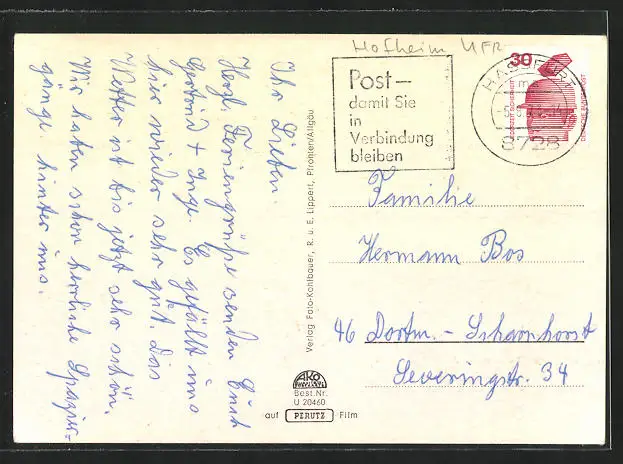 Ihr Lieben.
Herzl. Feriengrüße senden Euch
Gertrud + Inge. Es gefällt uns
hier wieder sehr gut. Das
Wetter ist bis jetzt sehr schön.
Wir haben schon herrliche Spazier=
gänge hinter uns.
Verlag Foto-Kahlbauer, R. u. E. Lippert, Pfronten/Allgäu
Hofheim UFR
Post–
damit Sie
in
Verbindung
bleiben
HASSFURT
8728
30
DEUTSCHE BUNDESPOST
Familie
Hermann Bos
46 Dortm. - Scharnhorst
Severingstr. 34
AKO
Best.Nr.
U 20460
auf PERUTZ Film